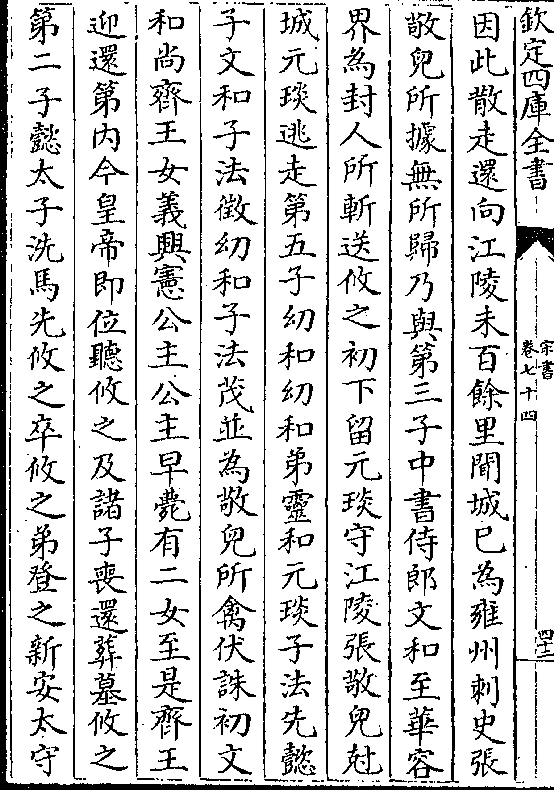 欽定四庫全書
宋書
卷七十四
四十二
因此散走還向江陵未百餘里聞城巳為雍州刺史張
敬兒所據無所歸乃與第三子中書侍郎文和至華容
界為封人所斬送攸之初下留元琰守江陵張敬兒尅
城元琰逃走第五子幼和幼和弟靈和元琰子法先懿
子文和子法徵幼和子法茂並為敬兒所禽伏誅初文
和尚齊王女義興憲公主公主早薨有二女至是齊王
迎還第内今皇帝即位聽攸之及諸子喪還葬墓攸之
第二子懿太子洗馬先攸之卒攸之弟登之新安太守